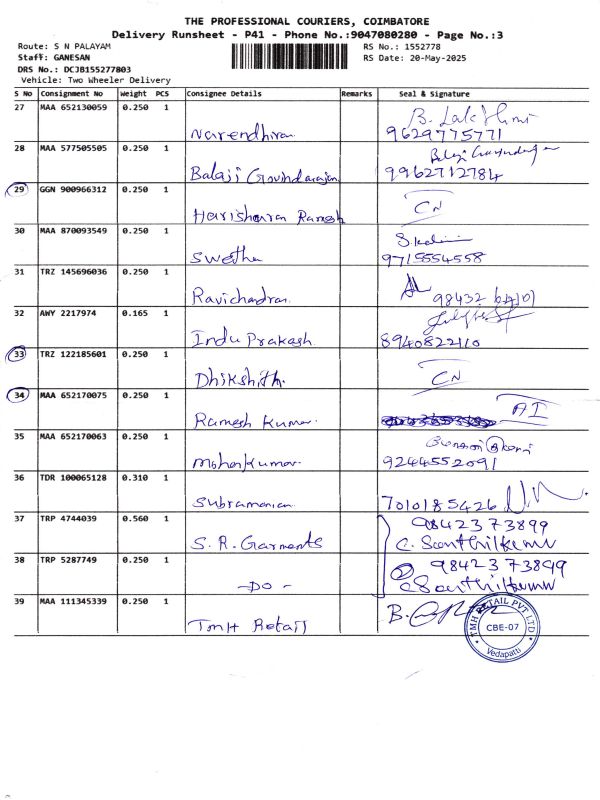 THE PROFESSIONAL COURIERS, COIMBATORE
Delivery Runsheet - P41 - Phone No.:9047080280 - Page No.:3
Route: S N PALAYAM
RS No.: 1552778
Staff: GANESAN
RS Date: 20-May-2025
DRS No.: DCJB155277803
Vehicle: Two Wheeler Delivery
S No Consignment No Weight PCS Consignee Details Remarks Seal & Signature
27 MAA 652130059 0.250 1
B. Lakshmi
Narendhiran 9629775771
28 MAA 577505505 0.250 1
Balaji Govindarajan
Balaji Govindarajan 9962712784
29 GGN 900966312 0.250 1
CN
Harishwara Ramesh
30 MAA 870093549 0.250 1
Swetha 9715554558
31 TRZ 145696036 0.250 1
Ravichandran 98432
32 AWY 2217974 0.165 1
Indu Prakash 8940822110
33 TRZ 122185601 0.250 1
Dhikshith. CN
34 MAA 652170075 0.250 1
AI
Ramesh Kumar
35 MAA 652170063 0.250 1
Mohankumar 9244552091
36 TDR 100065128 0.310 1
Subramanian 7010185426
37 TRP 4744039 0.560 1
9842373899
S.R. Garments C. Senthilkumar
38 TRP 5287749 0.250 1
2 9842373899
-DO- C Senthilkumar
39 MAA 111345339 0.250 1
B.
TMH Retail
TMH RETAIL PVT LTD
CBE-07
Vedapatti